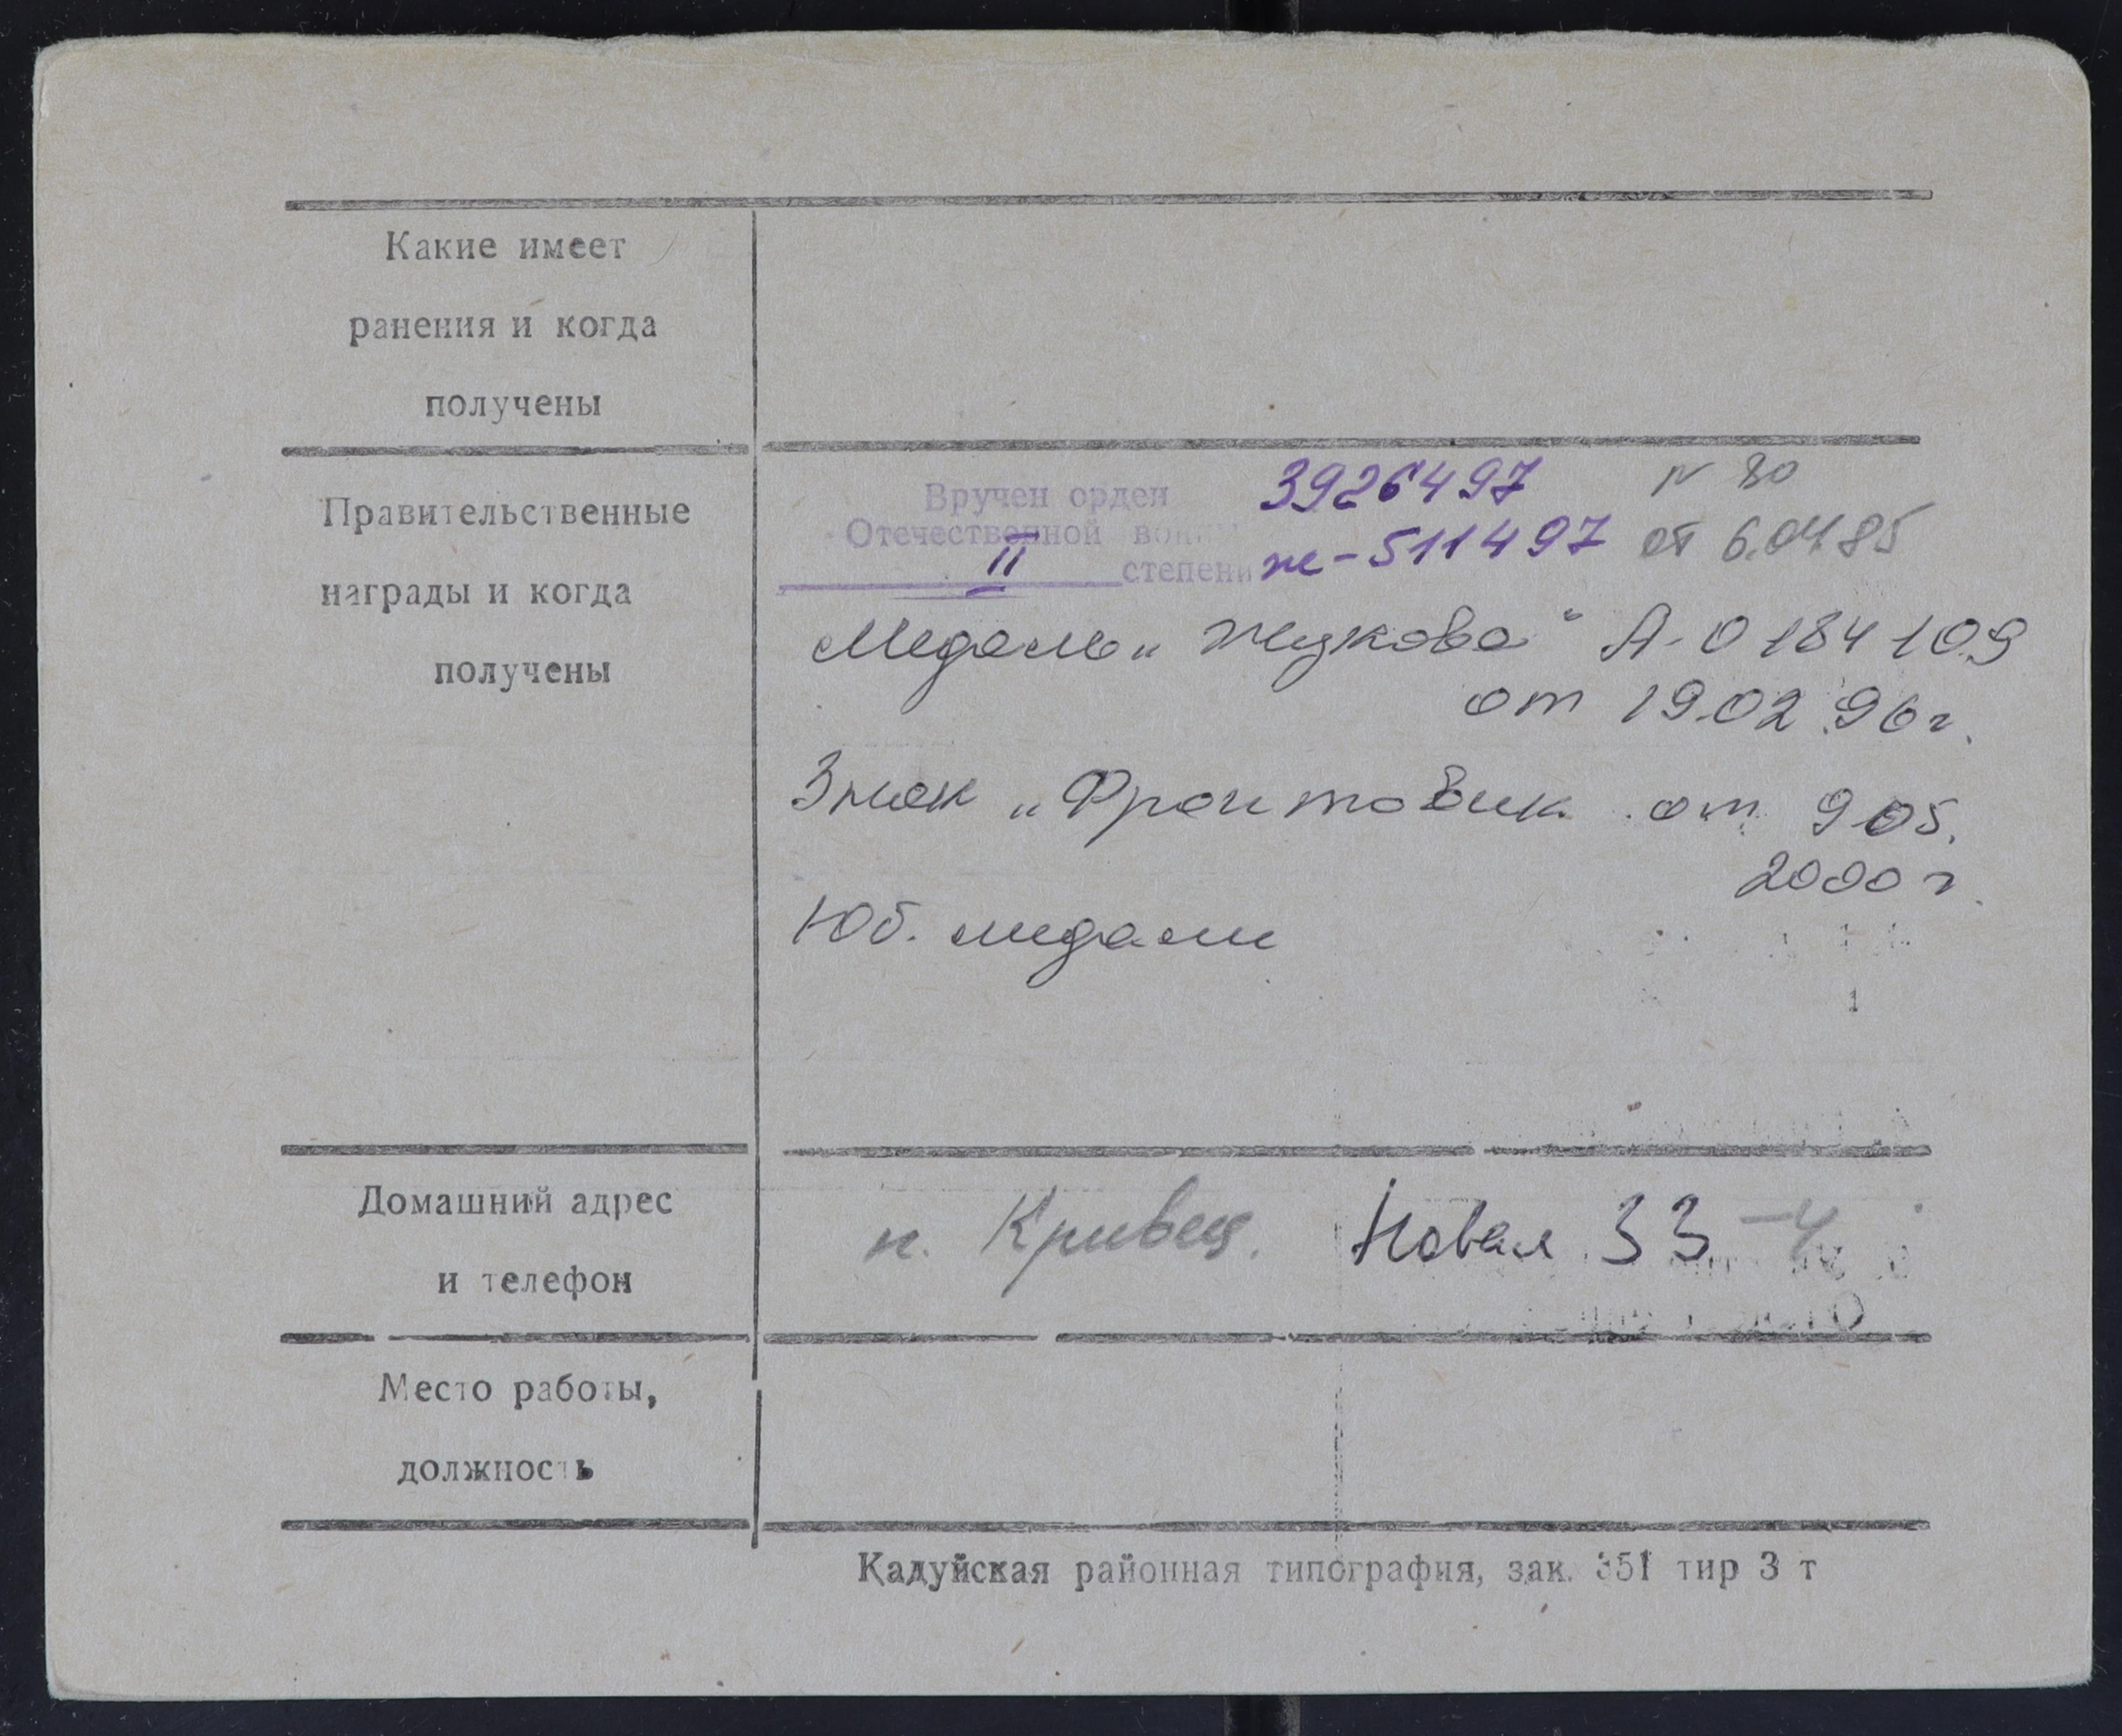 Какие имеет
ранения и когда
получены
Правительственные
награды и когда
получены
Вручен орден 3926497 N 80
Отечественной войны ж-511497 от 6.04.85
II степени
Медаль „Жукова" А-0184109
от 19.02.96г.
Знак „Фронтовик от 9 05.
2000 г.
Юб. медали
Домашний адрес
и телефон
п. Кривец. Новая 33-4
Место работы,
должность
Кадуйская районная типография, зак. 351 тир 3 т